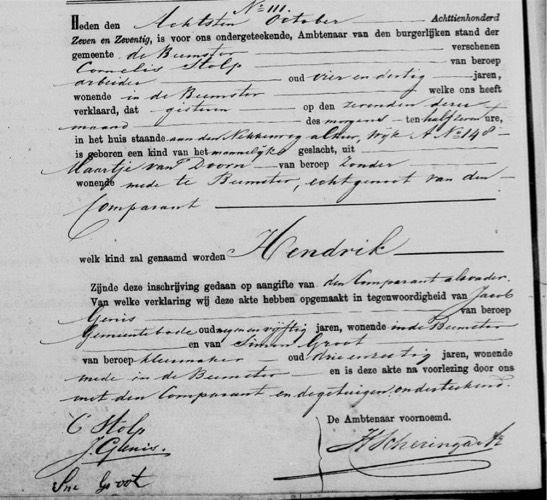 No 111.
Heden den Achtsten October Achttienhonderd
Zeven en Zeventig, is voor ons ondergeteekende, Ambtenaar van den burgerlijken stand der
gemeente de Beemster verschenen
Cornelis Stolp van beroep
arbeider oud vier en dertig jaren,
wonende in de Beemster welke ons heeft
verklaard, dat gisteren op den zevenden dezer
maand des morgens ten half zeven ure,
in het huis staande aan den Nekkerweg alhier, Wijk A No 148
is geboren een kind van het mannelijke geslacht, uit
Maartje van Doorn van beroep zonder
wonende mede te Beemster, echtgenoot van den
Comparant
welk kind zal genaamd worden Hendrik
Zijnde deze inschrijving gedaan op aangifte van den Comparant als vader.
Van welke verklaring wij deze akte hebben opgemaakt in tegenwoordigheid van Jacob
Genis van beroep
Gemeentebode oud negen en vijftig jaren, wonende in de Beemster
en van Simon Groot
van beroep kleermaker oud drie en zestig jaren, wonende
mede in de Beemster en is deze akte na voorlezing door ons
met den Comparant en de getuigen, onderteekend.
De Ambtenaar voornoemd.
C Stolp
J. Genis.
Sn Groot